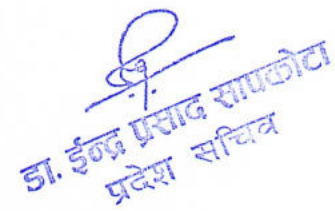 डा. ईन्द्र प्रसाद सापकोटा
प्रदेश सचिव